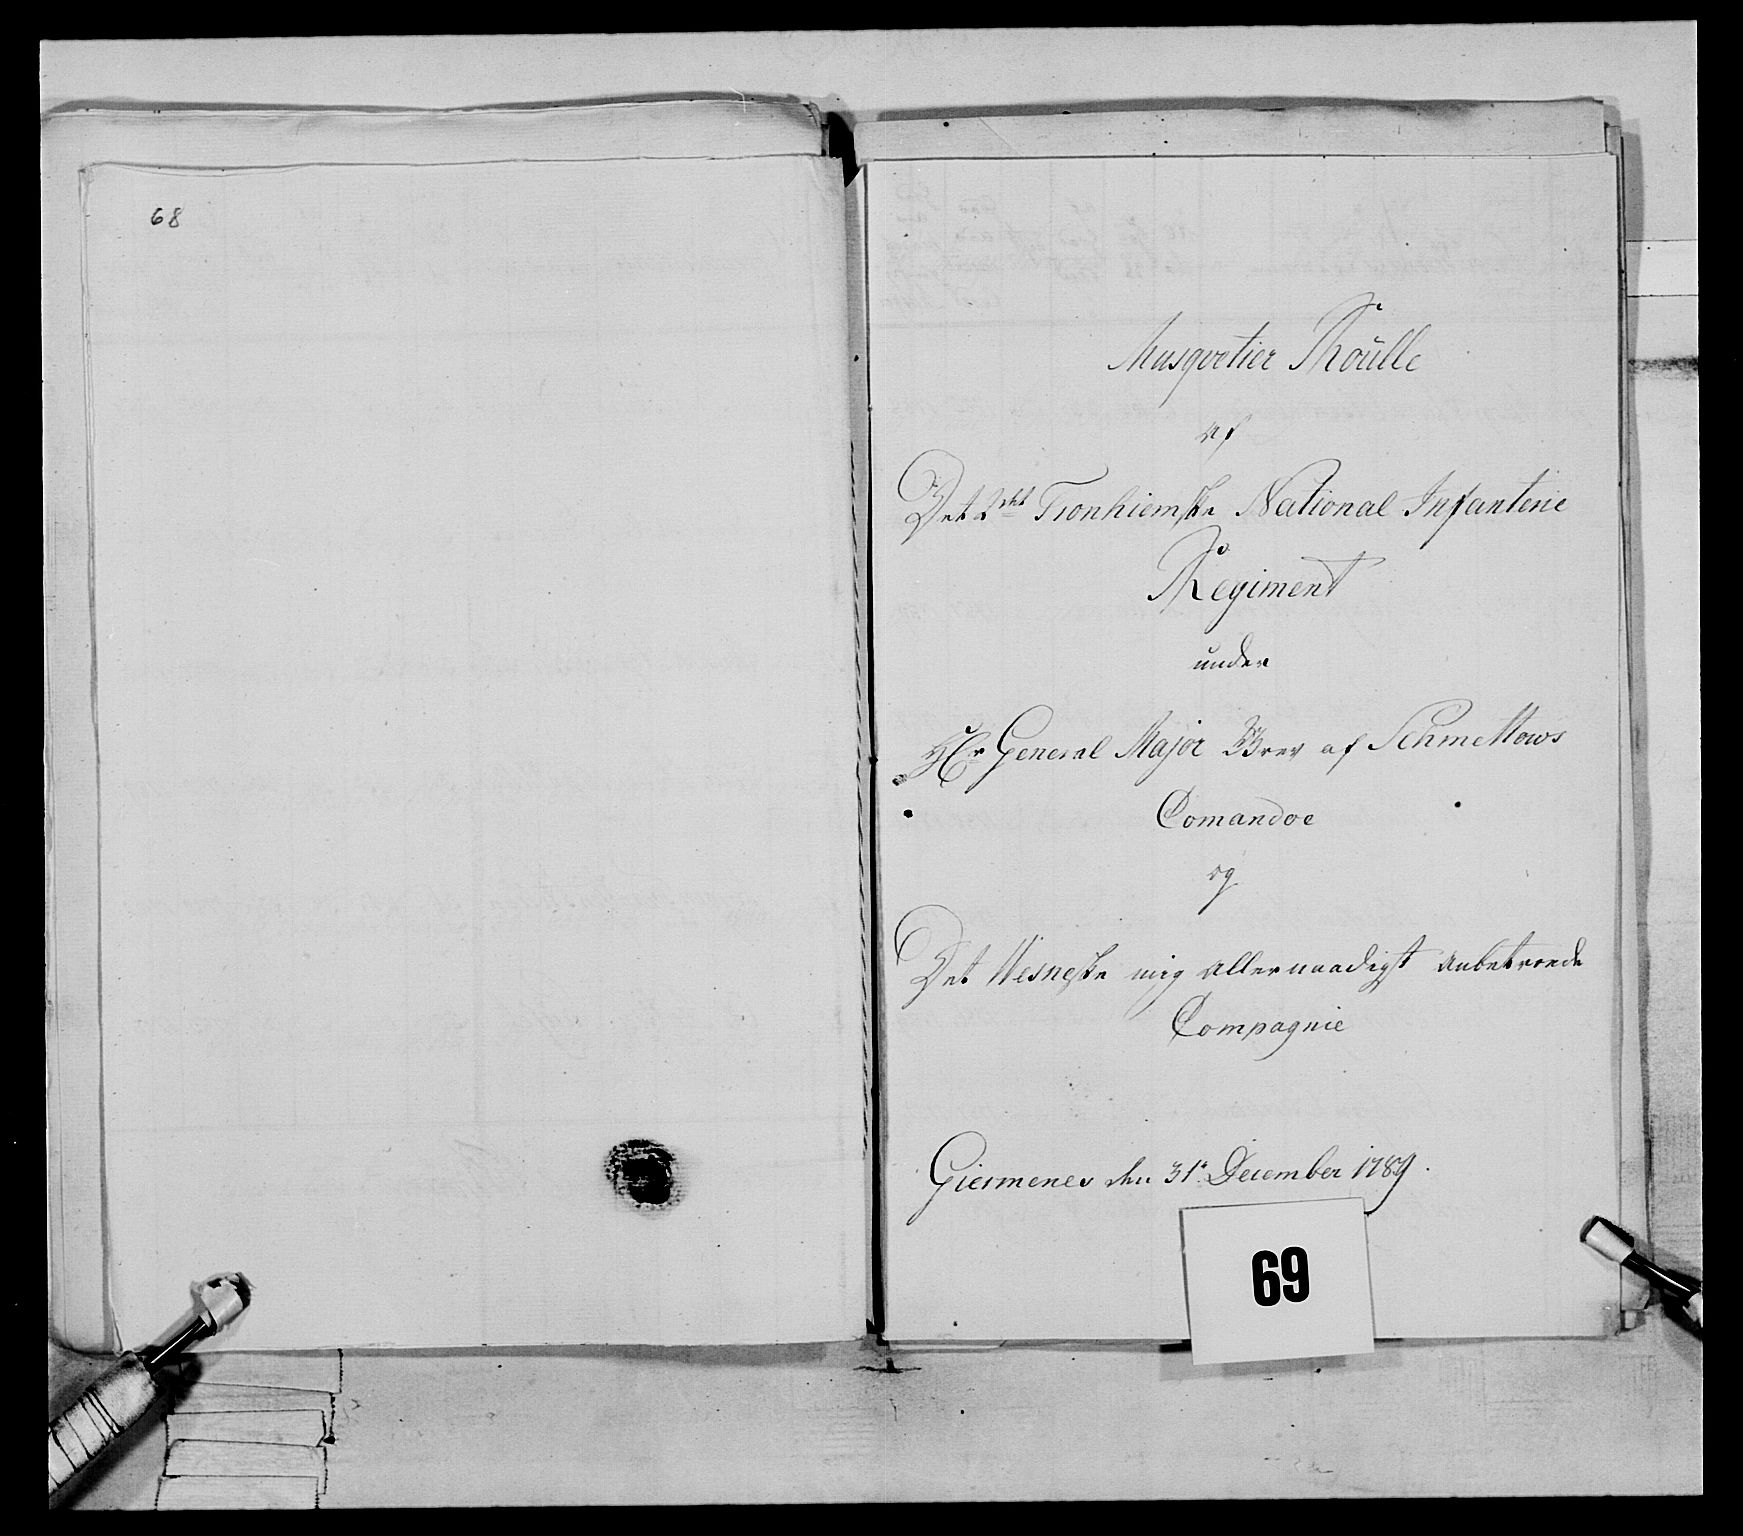 68
Musqvetier Roulle
af
Det 2det Tronhiemske National Infanterie
Regiment
under
Hr General Major Grev af Schmettows
Comandoe
og
Det Wesneske mig allernaadigst anbetroede
Compagnie
Giermenes den 31t December 1789.
69